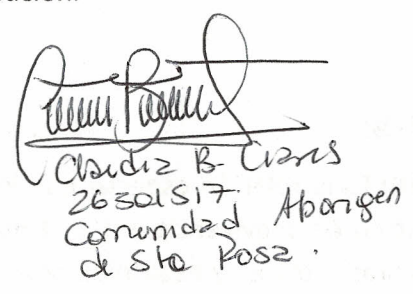 Claudia B. Ciares
26301517.
Comunidad Aborigen
de Sta Rosa.